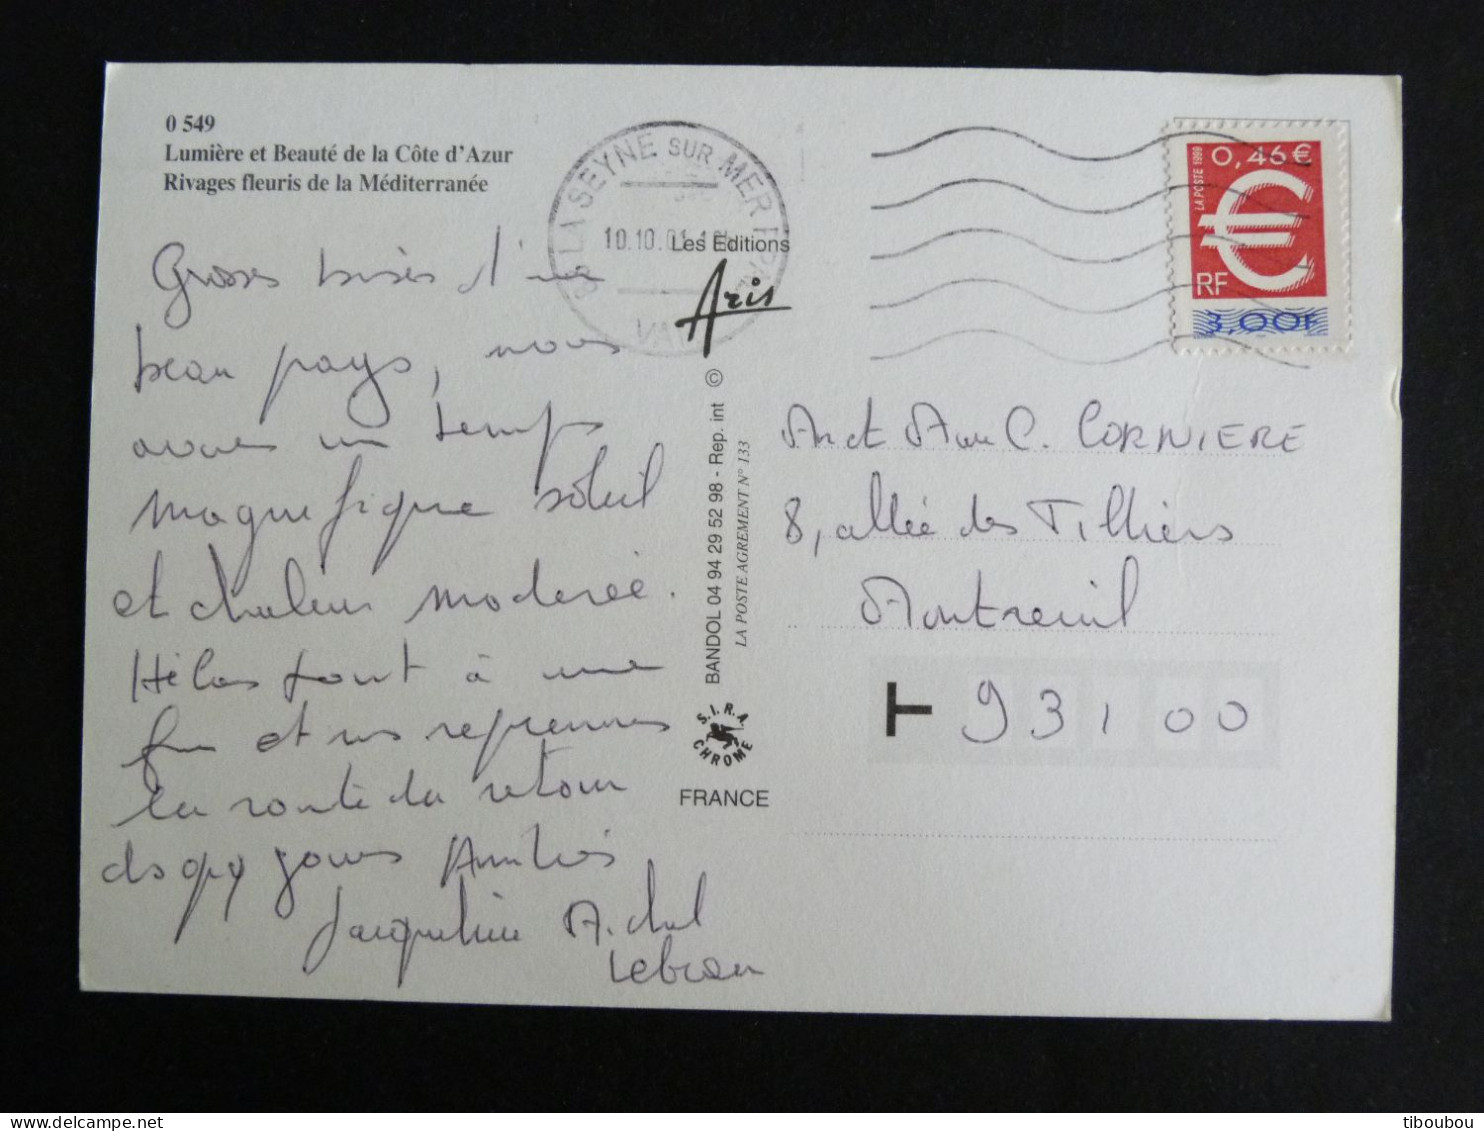 0 549
Lumière et Beauté de la Côte d'Azur
Rivages fleuris de la Méditerranée
LA SEYNE SUR MER PPAL
10.10.01
VAR
Les Editions
Aris
LA POSTE 1999
0,46 €
€
RF
3,00F
Grosses bises d'un
beau pays, nous
avons un temps
magnifique soleil
et chaleur modérée.
Hélas tout à une
fin et ns reprenons
la route du retour
ds qq jours Amitiés
Jacqueline Michel
Lebrau
BANDOL 04 94 29 52 98 - Rep. int ©
LA POSTE AGREMENT N° 133
S.I.R.A
CHROME
FRANCE
M et Mme C. CORNIERE
8, allée des Tilliers
Montreuil
T 93100
tiboubou